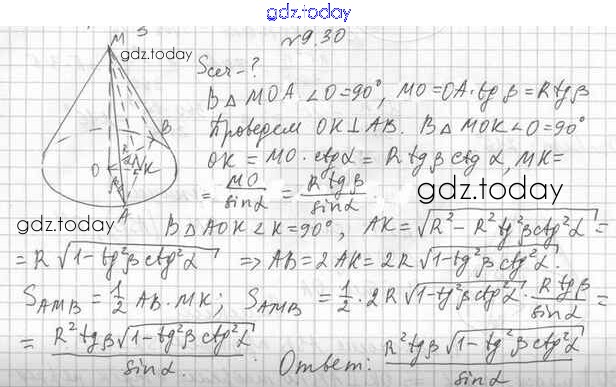 gdz.today
№9.30
M
S
gdz.today
B
O
K
A
gdz.today
Sсеч-?
В △ MOA ∠O=90°, MO=OA·tgβ=Rtgβ
Проведем OK⊥AB. В △ MOK ∠O=90°
OK = MO·ctgα = Rtgβ ctgα, MK=
= MO/sinα = Rtgβ/sinα.
gdz.today
В △ AOK ∠K=90°, AK=√(R²-R²tg²β ctg²α)=
=R√(1-tg²β ctg²α) ⇒ AB=2AK=2R√(1-tg²β ctg²α).
S_AMB=1/2 AB·MK; S_AMB=1/2·2R√(1-tg²β ctg²α)·Rtgβ/sinα=
= R²tgβ√(1-tg²β ctg²α)/sinα. Ответ: R²tgβ√(1-tg²β ctg²α)/sinα
gdz.today